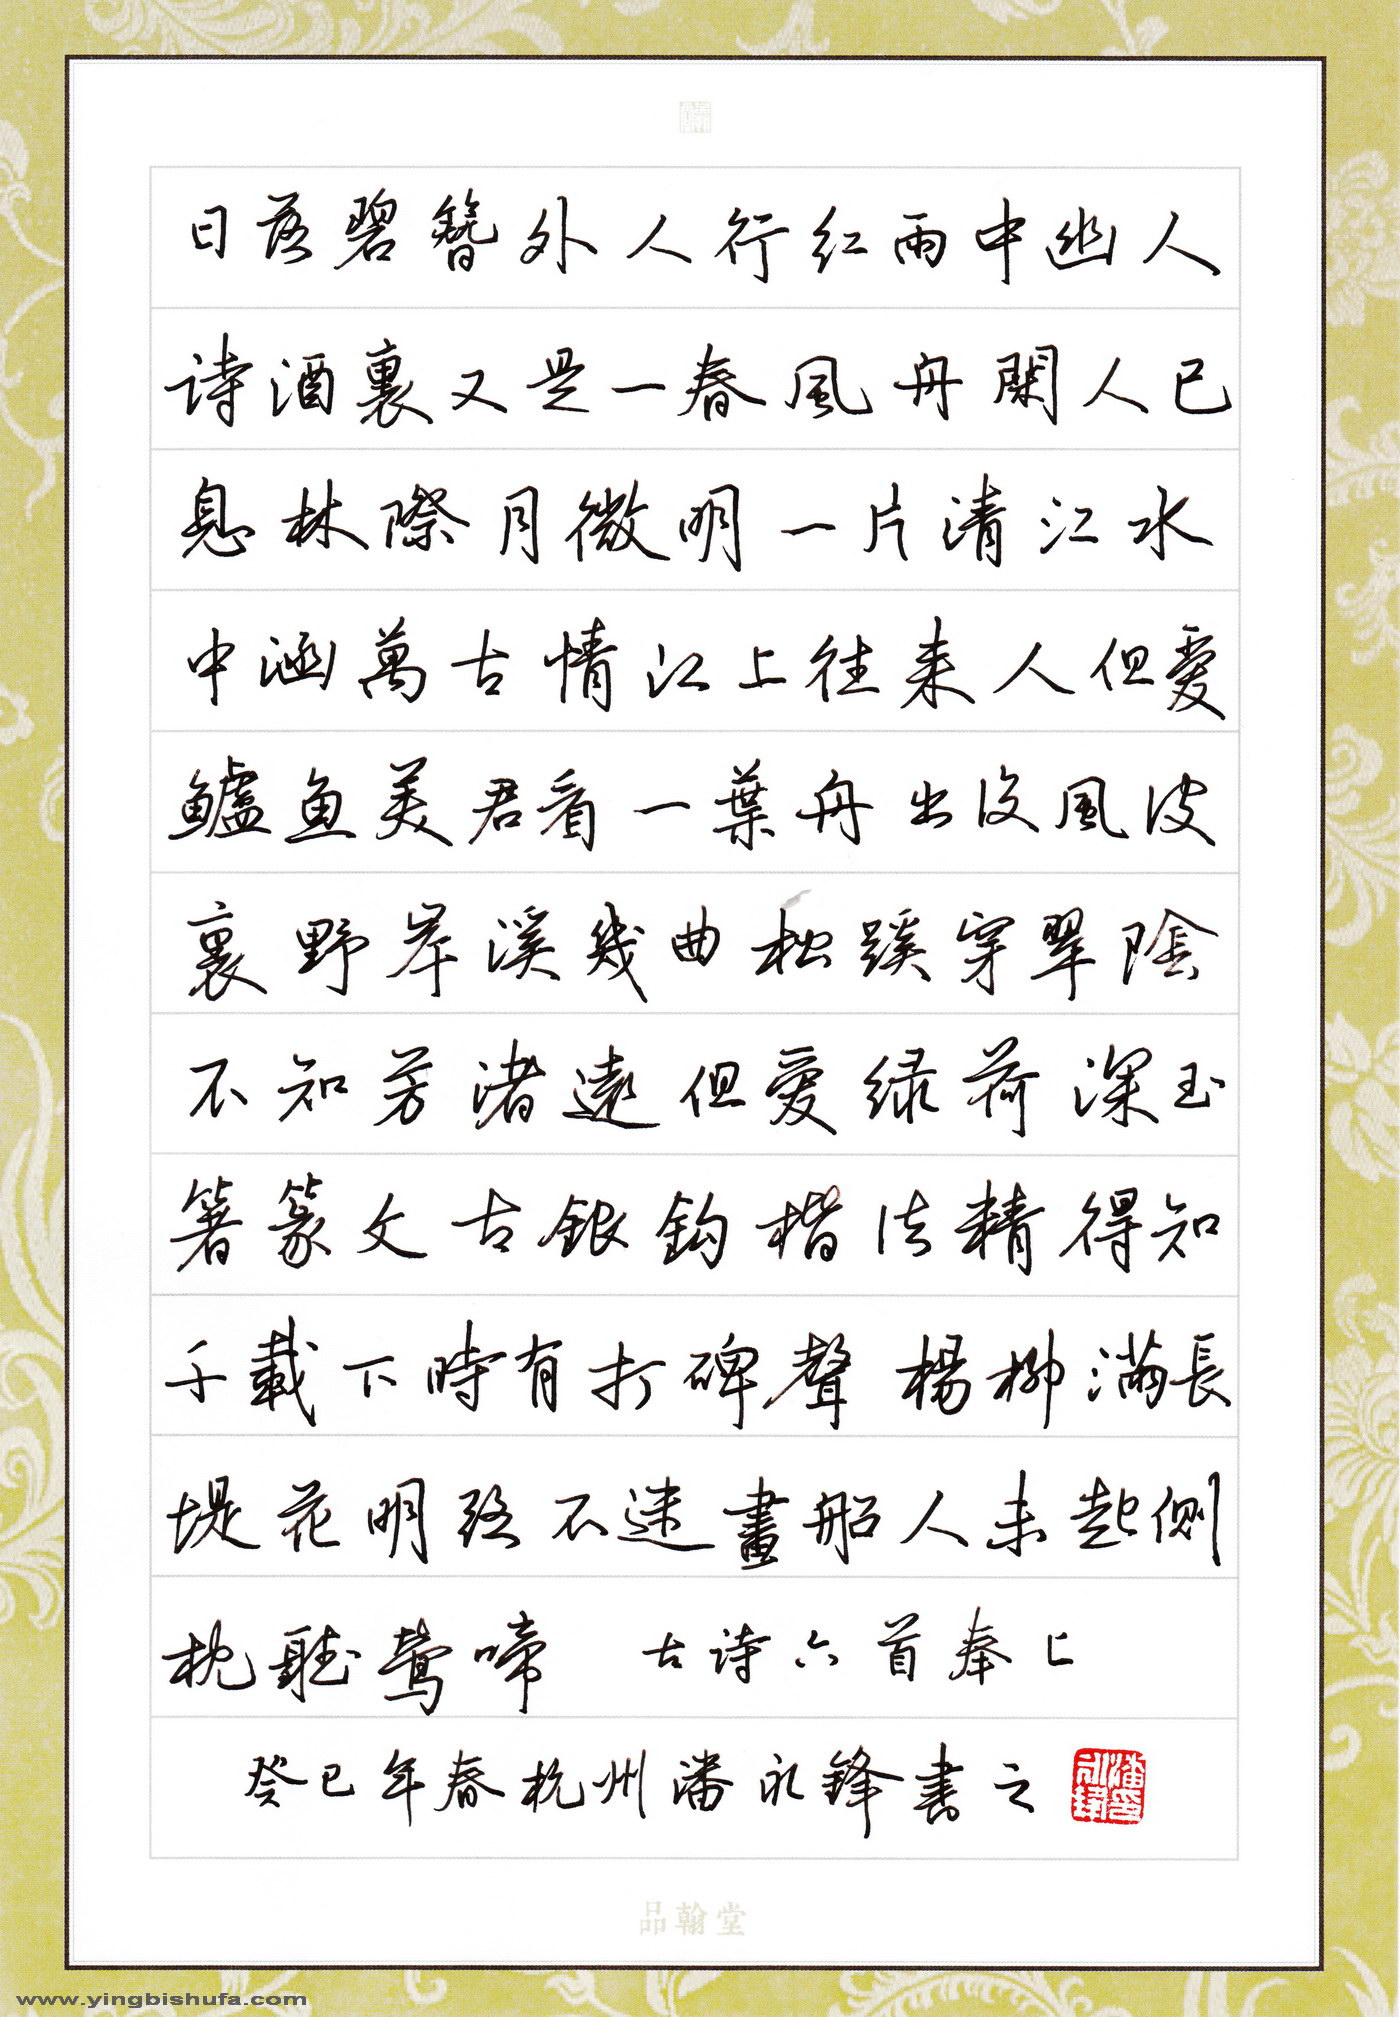 日落碧簪外人行红雨中幽人
诗酒裏又是一春風舟閑人已
息林際月微明一片清江水
中涵萬古情江上往来人但爱
鲈鱼美君看一葉舟出没風波
裏野岸溪幾曲松蹊穿翠陰
不知芳渚遠但爱绿荷深玉
箸篆文古銀鈎楷法精得知
千載下時有打碑聲楊柳满長
堤花明路不迷畫船人未起侧
枕聽鶯啼 古诗六首奉上
癸巳年春杭州潘永鋒書之
品翰堂
www.yingbishufa.com